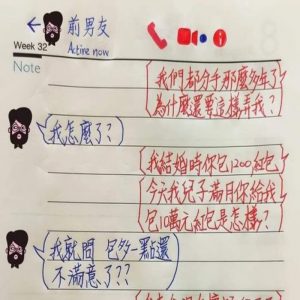 前男友
Active now
Week 32
Note
我們都分手那麼多年了
為什麼還要這樣弄我?
我怎麼了?
我結婚時你包1200紅包
今天我兒子滿月你給我
包10萬元紅包是怎樣?
我就問 包多一點還
不滿意了??